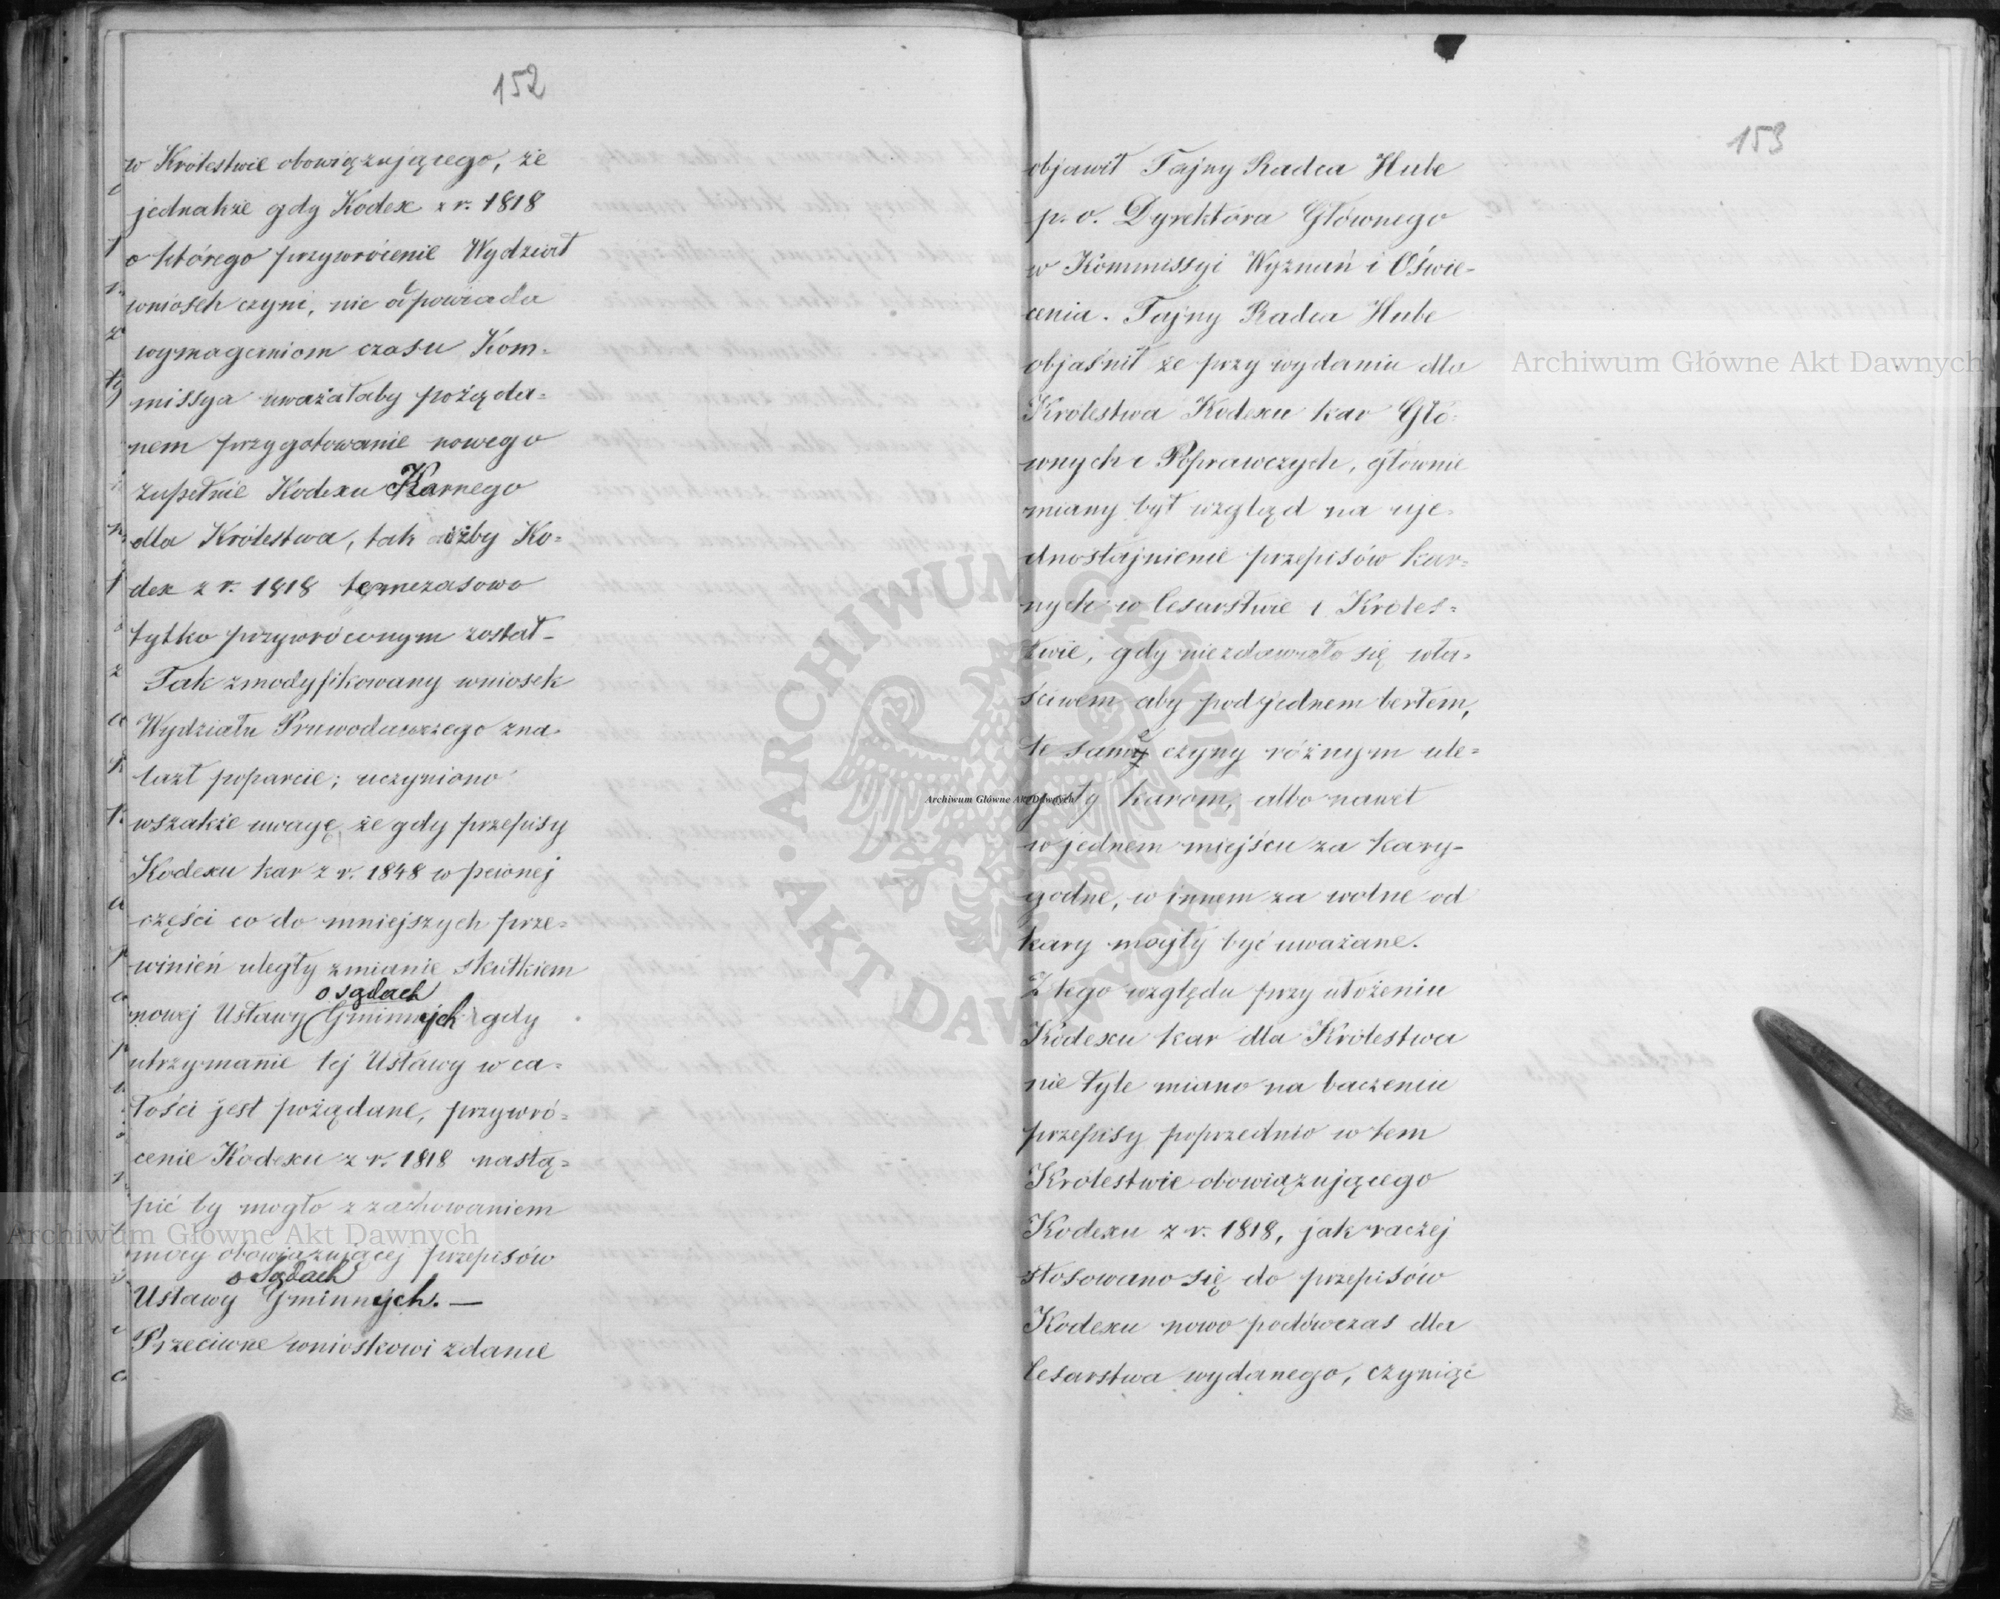 152
w Królestwie obowiązującego, że
jednakże gdy Kodex z r. 1818
o którego przywrócenie Wydział
wniosek czyni, nie odpowiada
wymaganiom czasu Kom-
missya uważałaby pożąda-
nem przygotowanie nowego
zupełnie Kodexu Karnego
dla Królestwa, tak iżby Ko-
dex z r. 1818 tymczasowo
tylko przywróconym został -
Tak zmodyfikowany wniosek
Wydziału Prawodawczego zna-
lazł poparcie; uczyniono
wszakże uwagę, że gdy przepisy
Kodexu kar z r. 1848 w pewnej
części co do mniejszych prze-
winień uległy zmianie skutkiem
o sądach
nowej Ustawy Gminnych gdy
utrzymanie tej Ustawy w ca-
łości jest pożądane, przywró-
cenie Kodexu z r. 1818 nastą-
pić by mogło z zachowaniem
mocy obowiązującej przepisów
o sądach
Ustawy Gminnych. —
Przeciwne wnioskowi zdanie
153
objawił Tajny Radca Hube
p. o. Dyrektora Głównego
w Kommissyi Wyznań i Oświe-
cenia. Tajny Radca Hube
objaśnił że przy wydaniu dla
Królestwa Kodexu kar Głó-
wnych i Poprawczych, głównie
miany był wzgląd na uje-
dnostajnienie przepisów kar-
nych w Cesarstwie i Króles-
twie, gdy niezdawało się wła-
ściwem aby pod jednem berłem,
te same czyny różnym ule-
gały karom, albo nawet
w jednem miejscu za kary-
godne, w innem za wolne od
kary mogły być uważane.
Z tego względu przy ułożeniu
Kodexu kar dla Królestwa
nie tyle miano na baczeniu
przepisy poprzednio w tem
Królestwie obowiązującego
Kodexu z r. 1818, jak raczej
stosowano się do przepisów
Kodexu nowo podówczas dla
Cesarstwa wydanego, czyniąc
Archiwum Główne Akt Dawnych
Archiwum Główne Akt Dawnych
Archiwum Główne Akt Dawnych
ARCHIWUM GŁÓWNE AKT DAWNYCH